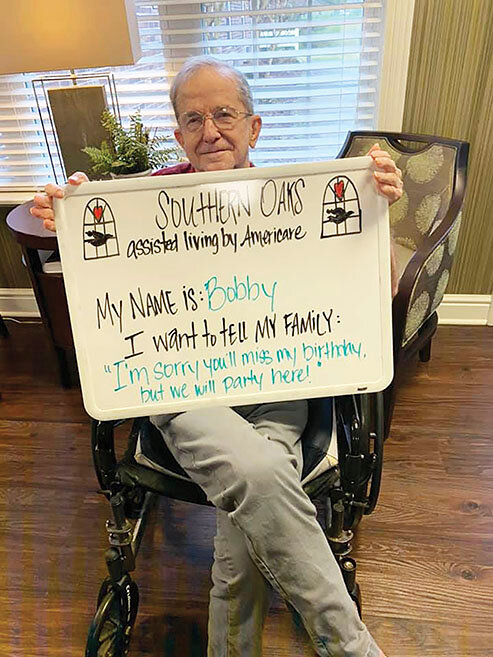 SOUTHERN OAKS
assisted living by Americare
MY NAME is: Bobby
I want to tell MY FAMILY:
"I'm sorry you'll miss my birthday,
but we will party here!"